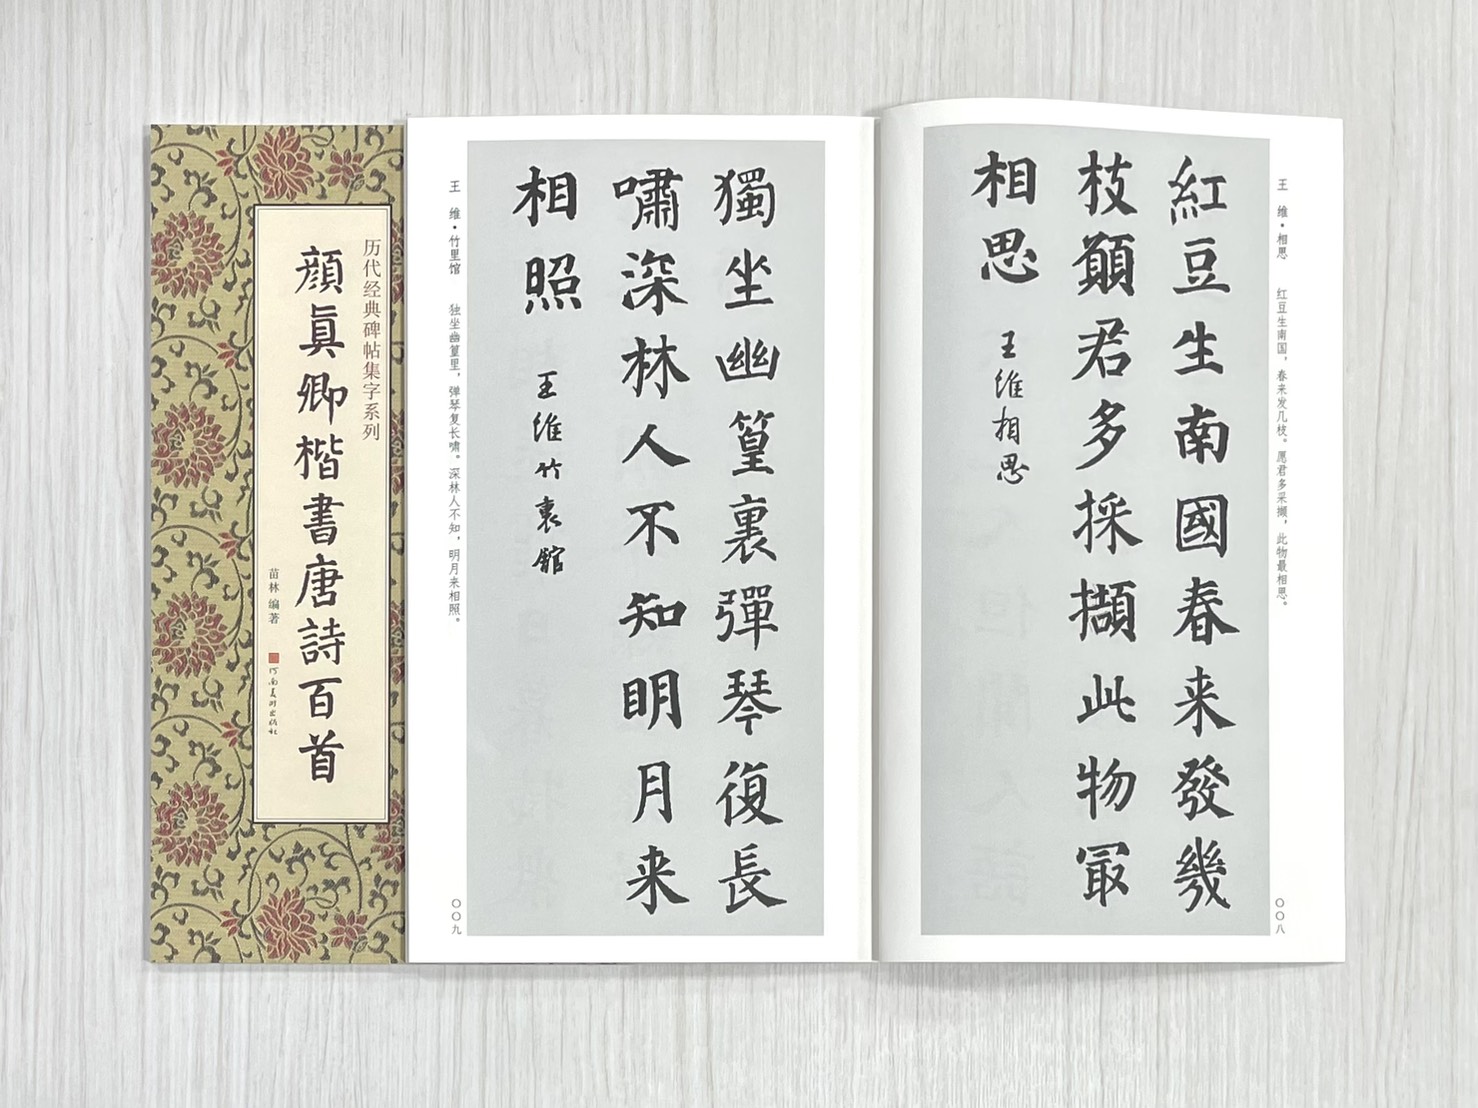 历代经典碑帖集字系列
顔真卿楷書唐詩百首
苗林 编著
河南美术出版社
王 维·相思 红豆生南国，春来发几枝。愿君多采撷，此物最相思。
紅豆生南國春来發幾
枝願君多採擷此物冣
相思
王維相思
〇〇八
獨坐幽篁裏彈琴復長
嘯深林人不知明月来
相照
王維竹裏館
王 维·竹里馆 独坐幽篁里，弹琴复长啸。深林人不知，明月来相照。
〇〇九